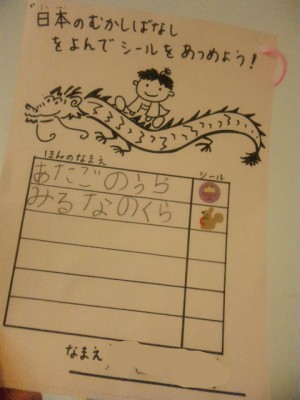 日本のむかしばなし
をよんでシールをあつめよう！
ほんのなまえ シール
あたごのうら
みるなのくら
なまえ